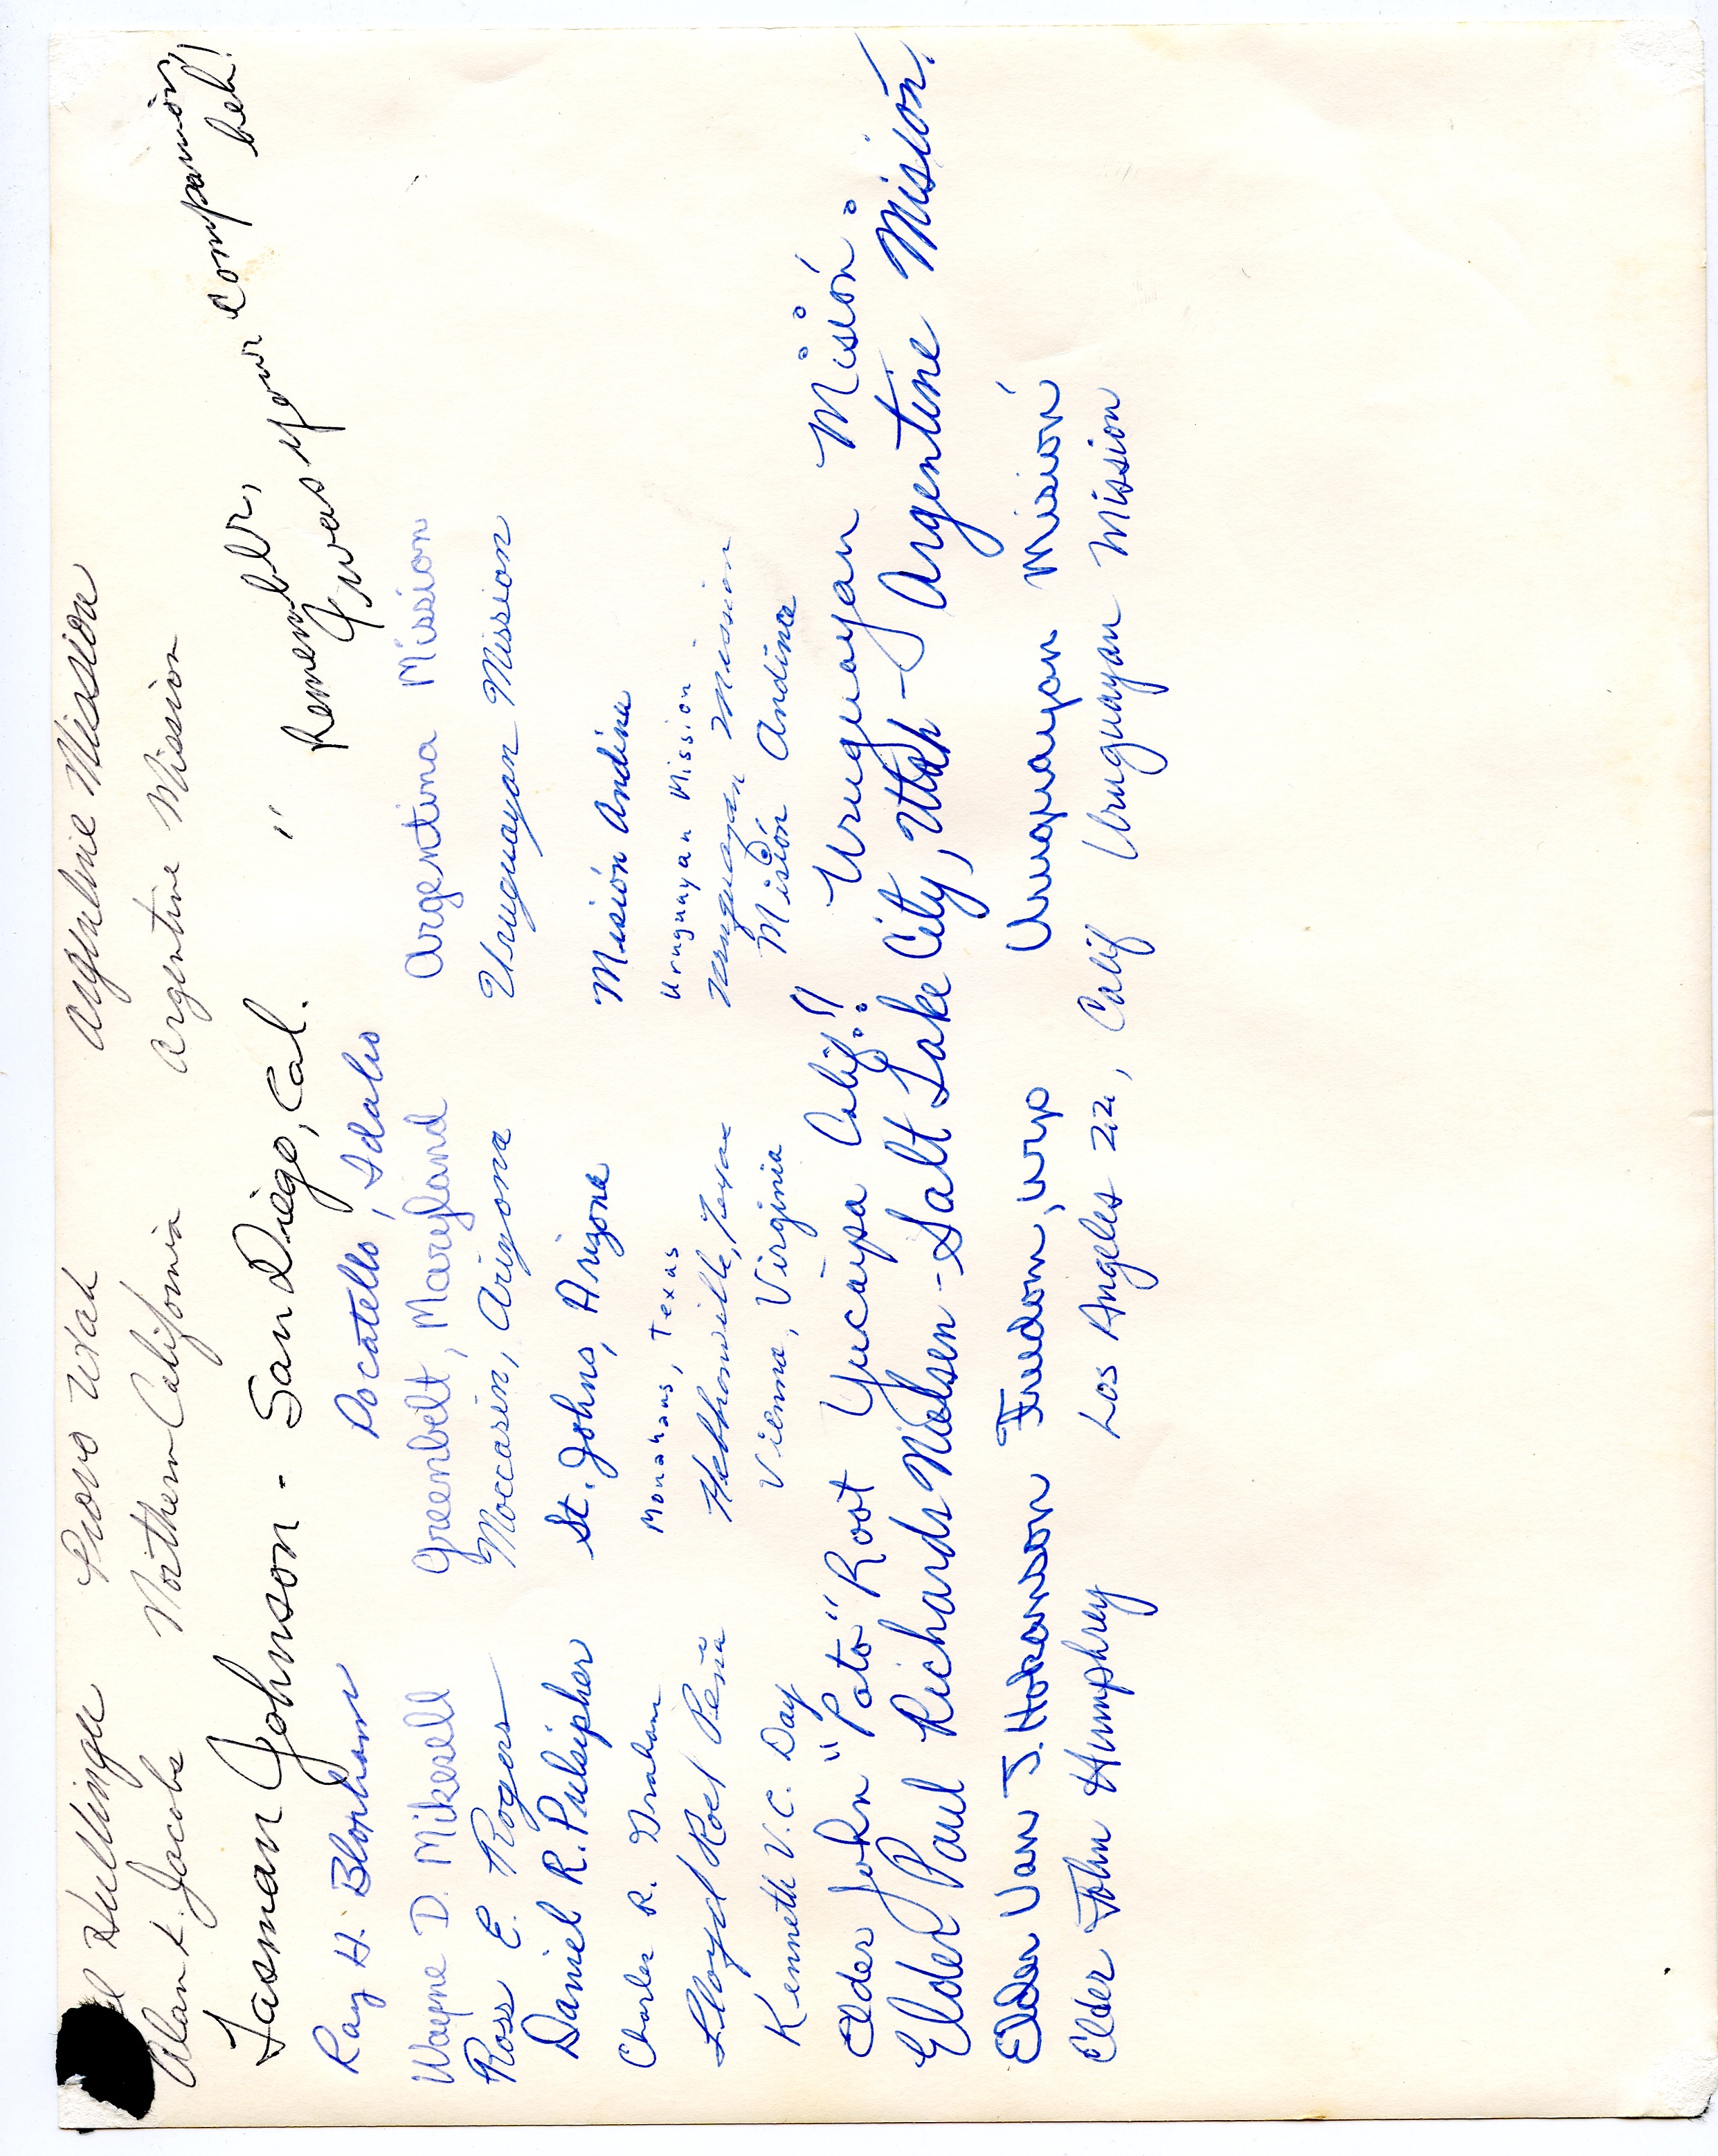 Hullinger Provo Utah Argentine Mission
Alan K. Jacobs Northern California Argentine Mission
Tasman Johnson - San Diego, Cal. " Remember, I was your companion, beh!
Ray H. Bloxham Pocatello, Idaho
Wayne D. Mikesell Greenbelt, Maryland Argentina Mission
Ross E. Rogers Moccasin, Arizona Uruguayan Mission
Daniel R. Pulsipher St. Johns, Arizona Misión Andina
Charles R. Graham Monahans, Texas Uruguayan Mission
Lloyd Roel Peña Hebbronville, Texas Uruguayan Mission
Kenneth V. C. Day Vienna, Virginia Misión Andina
Elder John "Pato" Rost Yucaipa Calif!! Uruguayan Misión
Elder Paul Richards Nielsen - Salt Lake City, Utah - Argentine Misión.
Elder Van J. Hokanson Freedom, Wyo Uruguayan Misión
Elder John Humphrey Los Angeles 22, Calif Uruguayan Mision